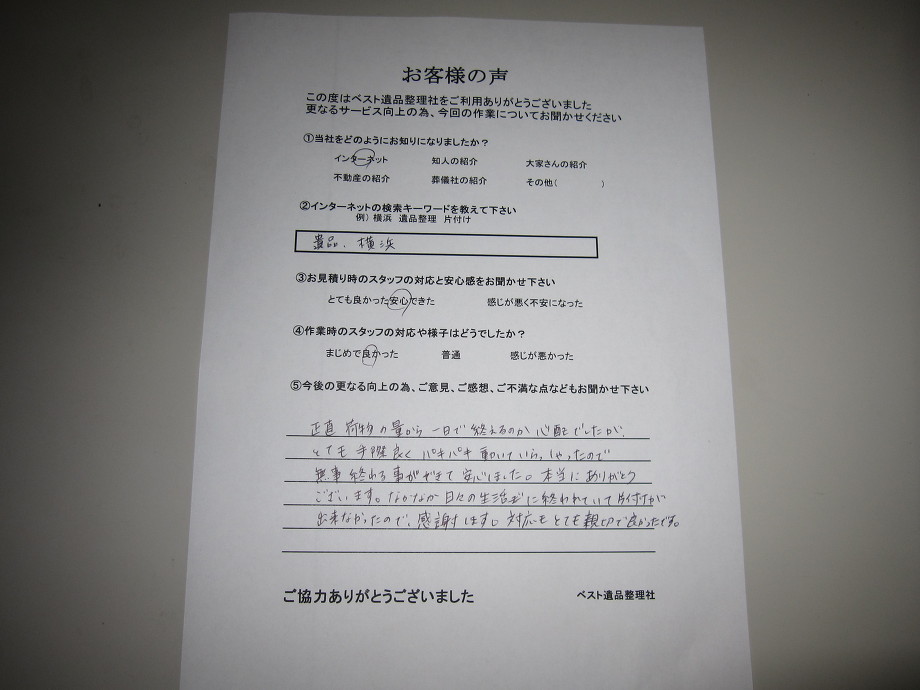 お客様の声
この度はベスト遺品整理社をご利用ありがとうございました
更なるサービス向上の為、今回の作業についてお聞かせください
①当社をどのようにお知りになりましたか？
インターネット 知人の紹介 大家さんの紹介
不動産の紹介 葬儀社の紹介 その他( )
②インターネットの検索キーワードを教えて下さい
例）横浜 遺品整理 片付け
遺品、横浜
③お見積り時のスタッフの対応と安心感をお聞かせ下さい
とても良かった安心できた 感じが悪く不安になった
④作業時のスタッフの対応や様子はどうでしたか？
まじめで良かった 普通 感じが悪かった
⑤今後の更なる向上の為、ご意見、ご感想、ご不満な点などもお聞かせ下さい
正直 荷物の量から 一日で 終えるのか 心配でしたが、
とても 手際良く パキパキ 動いていらっしゃったので
無事 終わる事ができて 安心しました。本当に ありがとう
ございます。なかなか 日々の生活に 終われていて 片付けが
出来なかったので、感謝します。対応も とても 親切で良かったです。
ご協力ありがとうございました
ベスト遺品整理社